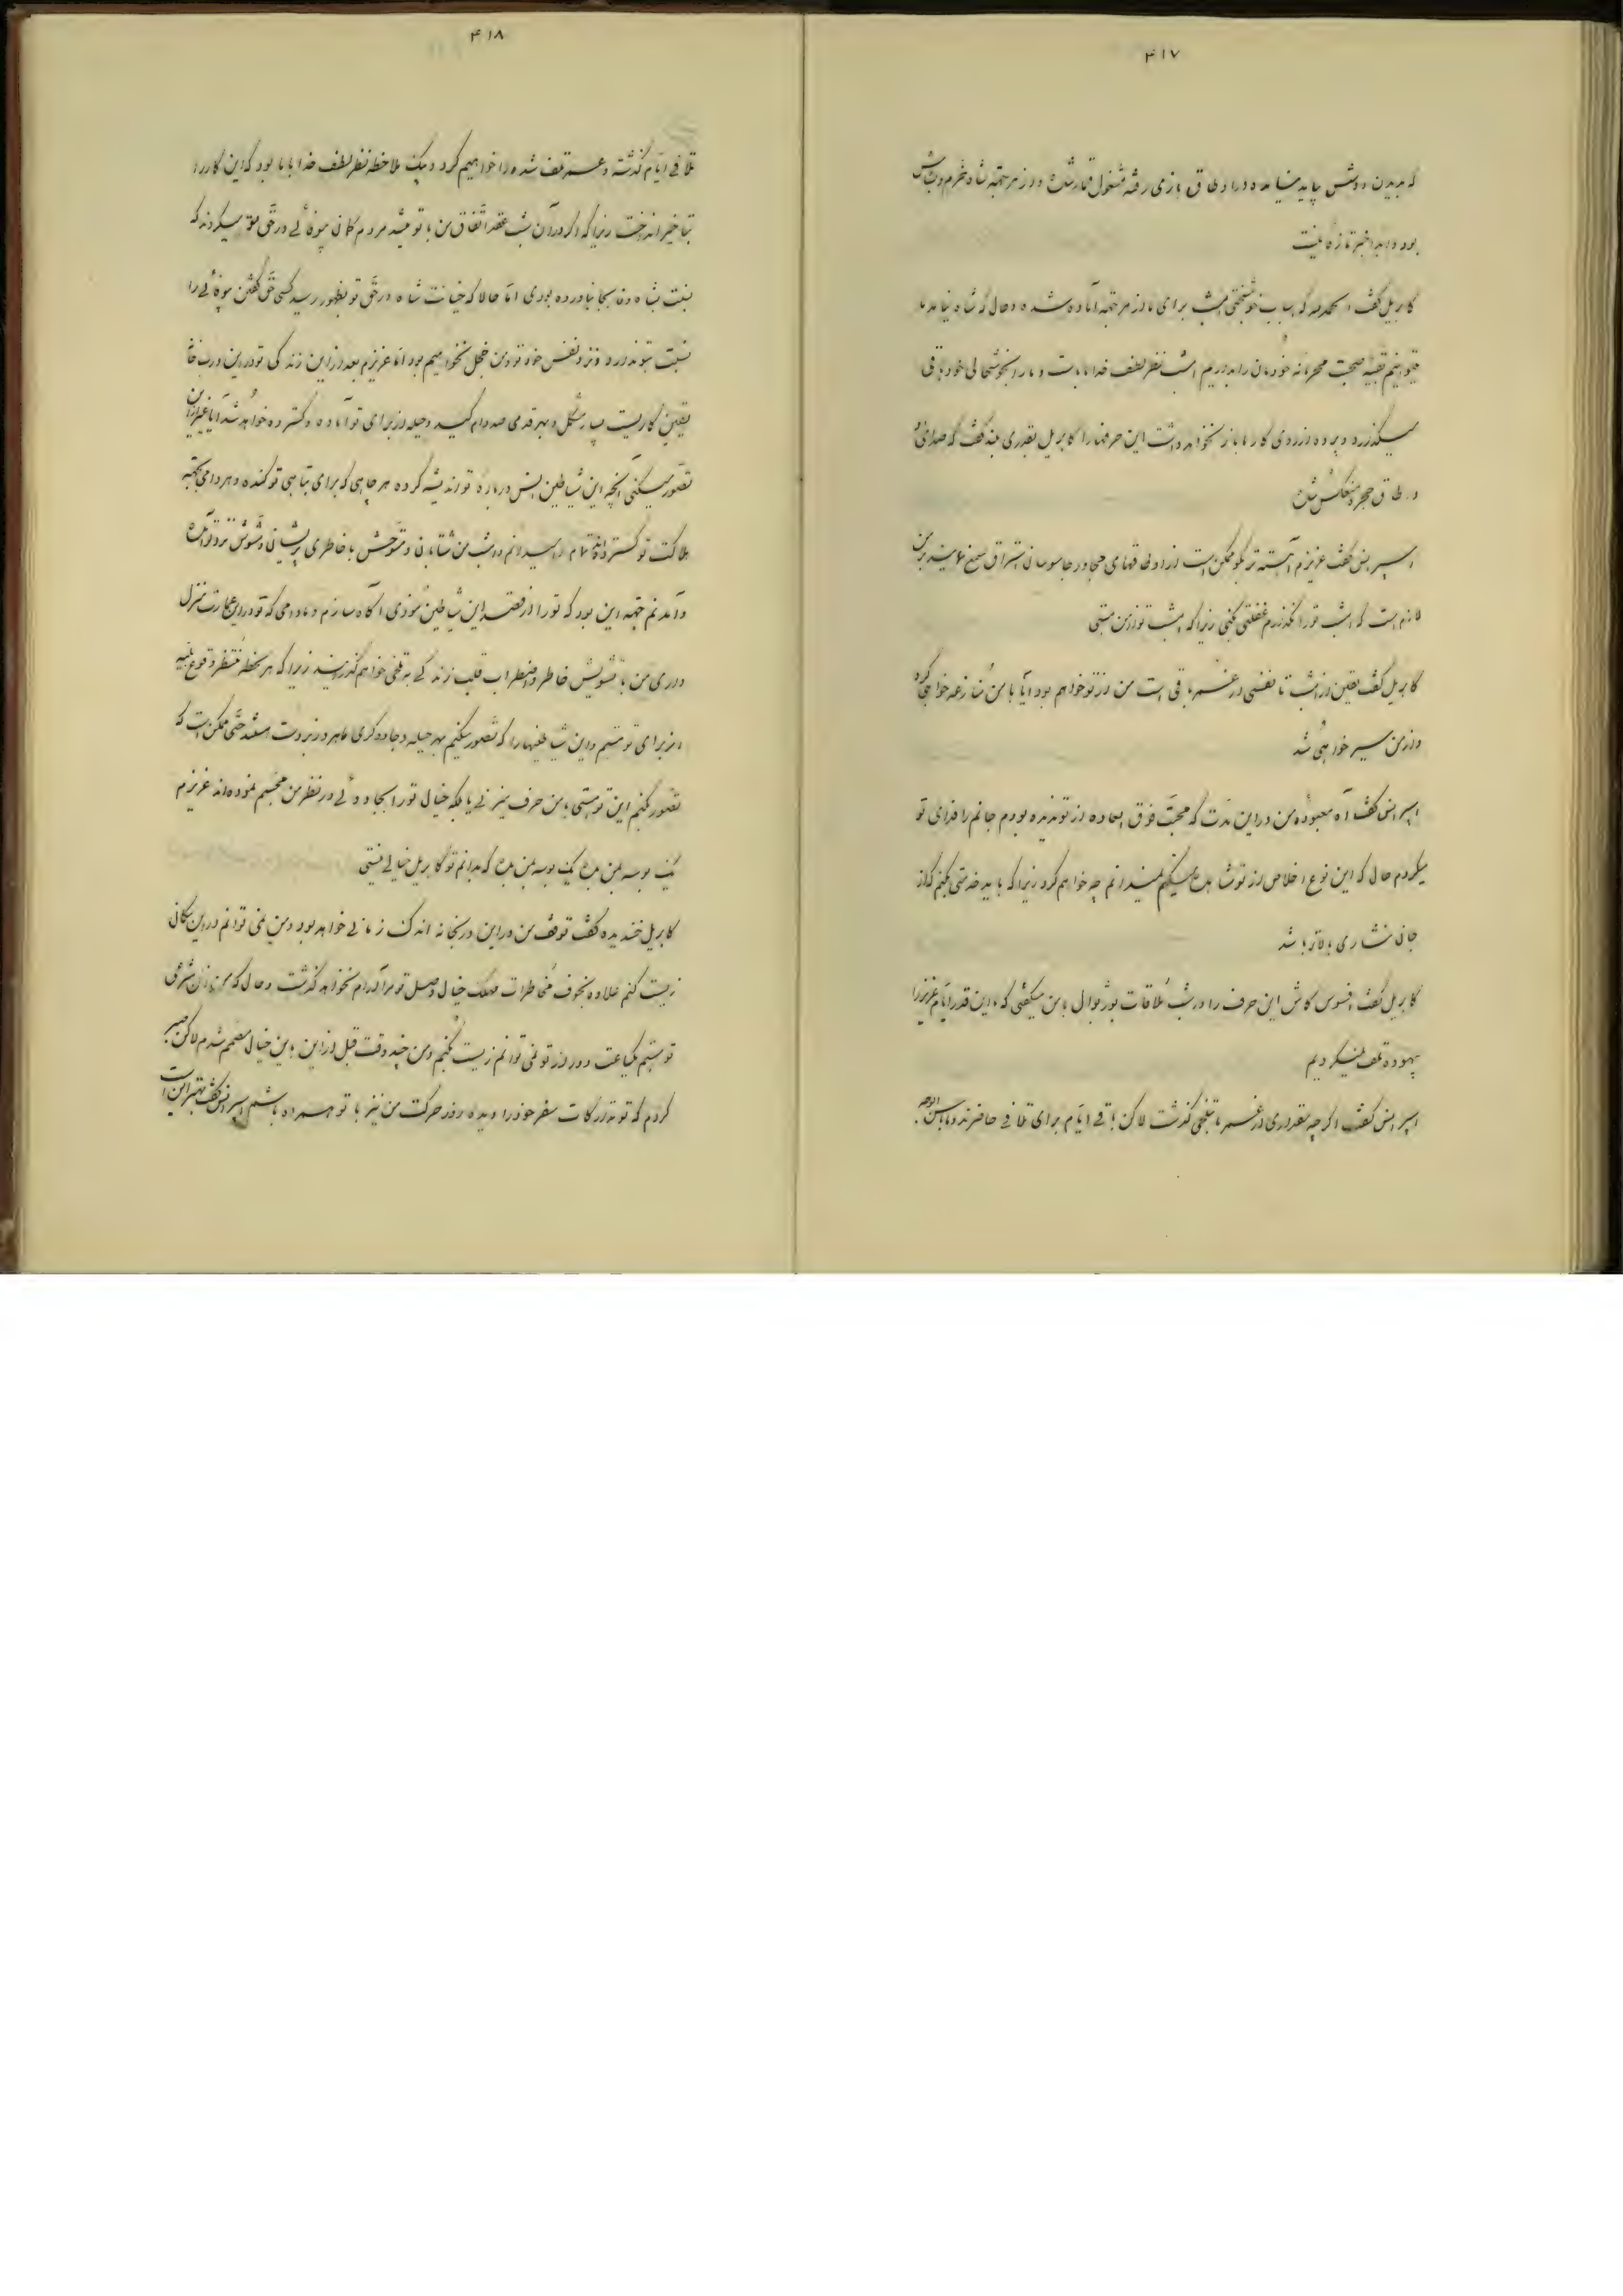 ۴۱۷
که بدین روش پایدینیامده در اوطاق بازی رفته مشغول قمار شد و از هر جهة شاد و خرم و بشاش
بود و ابدا خبر تازه نیست
کابریل گفت الحمدلله که اسباب خوشبختی امشب برای ما از هر جهة آماده شده و حال که شاه نیامد ما
میتوانیم بقیه صحبت محرمانه خودمان را بداریم امشب نظر لطف خدا با ماست و ما را بخوشحالی خود باقی
میگذارد و پرده از روی کار ما باز نخواهد داشت این حرفها را کابریل بقدری بلند گفت که صدای او
در طاق حجره منعکس شد
اسپرانس گفت عزیزم آهسته تر بگو ممکن است از اوطاقهای مجاور جاسوسان استراق سمع نمایند بر من
لازم است که امشب تو را نگذارم غفلتی کنی زیرا که امشب تو از من هستی
کابریل گفت یقین از امشب تا نفسی از عمرم باقی است من از تو خواهم بود آیا با من منازعه خواهی کرد
و از من سیر خواهی شد
اسپرانس گفت آه معبوده من در این مدت که محبت فوق العاده از تو ندیده بودم جانم را فدای تو
میکردم حال که این نوع اخلاص از تو مشاهده میکنم نمیدانم چه خواهم کرد زیرا که باید خدمتی بکنم که از
جان نثاری بالاتر باشد
کابریل گفت افسوس کاش این حرف را در شب ملاقات بوژیوال با من میگفتی که این قدر ایام عزیز را
بیهوده تلف نمیکردیم
اسپرانس گفت اگر چه مقداری از عمر ما بتلخی گذشت لاکن باقی ایام برای تلافی حاضرند و ما باحسن الوجه
۴۱۸
تلافی ایام گذشته و عمر تلف شده را خواهیم کرد و لیک ملاحظه نظر لطف خدا با ما بود که این کار را
بتاخیر انداخت زیرا که اگر در آن شب عقد اتفاق من با تو میشد مردم کمان بیوفائی در حق تو میکردند که
نسبت بشاه وفا بجا نیاورده بودی اما حالا که خیانت شاه در حق تو بظهور رسید کسی حق گفتن بیوفائی را
نسبت بتو ندارد و نزد نفس خود تو و من خجل نخواهیم بود اما عزیزم بعد از این زندگی تو در این دربخانه
یقین کاریست بسیار مشکل و بهر قدمی صد دام کید و حیله از برای تو آماده و گسترده خواهد شد آیا غیر از این
تصور میکنی آنچه این شیاطین انس درباره تو اندیشه کرده هر چاهی که برای تباهی تو کنده و هر دامی بجهة
هلاکت تو گسترده اند تمام را میدانم امشب من شتابان و متوحش با خاطری پریشان و مشوش نزد تو آمده
و آمدنم جهة این بود که تو را از فتنه این شیاطین موذی آگاه سازم و مادامی که تو در این عمارت منزل
داری من با تشویش خاطر و اضطراب قلب زندگی بتلخی خواهم گذرانید زیرا که هر لحظه منتظر وقوع بلیه
از برای تو هستم و این شیاطینها را که تصور میکنیم بهر حیله و جادوگری ماهر و زبردست هستند حتی ممکن است که
تصور کنم این تو نیستی با من حرف میزنی یا بلکه خیال تو را بجادوئی در نظر من مجسم نموده اند عزیزم
یک بوسه بمن بده یک بوسه بمن بده که بدانم تو کابریل خیالی نیستی
کابریل خندیده گفت توقف من در این دربخانه اندک زمانی خواهد بود و من نمی توانم در این مکان
زیست کنم علاوه بخوف مخاطرات مهلک خیال وصل تو مرا آرام نخواهد گذاشت و حال که من زن شرعی
تو هستم یکساعت دور از تو نمی توانم زیست کنم و من چند وقت قبل از این باین خیال مصمم شدم لاکن صبر
کردم که تو تدارکات سفر خود را دیده روز حرکت من نیز با تو همراه باشم اسپرانس گفت بهتر این است